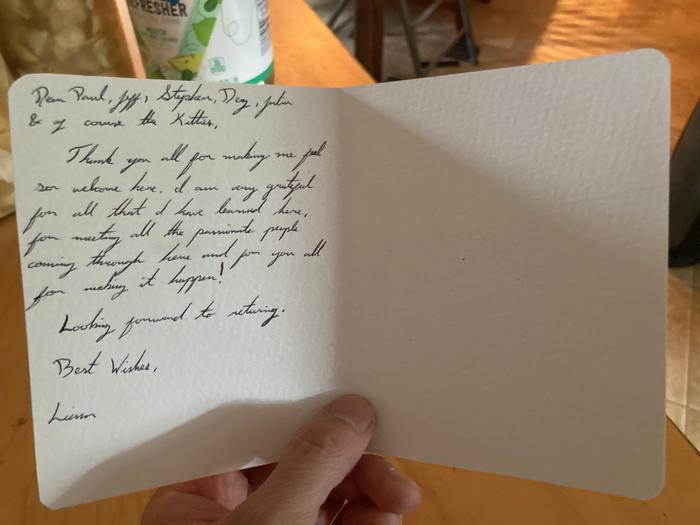 REFRESHER
Dear Paul, Jeff, Stephen, Deg, Julia
& of course the Kitties,
Thank you all for making me feel
so welcome here. I am very grateful
for all that I have learned here,
for meeting all the passionate people
coming through here and for you all
for making it happen!
Looking forward to returing.
Best Wishes,
Liam